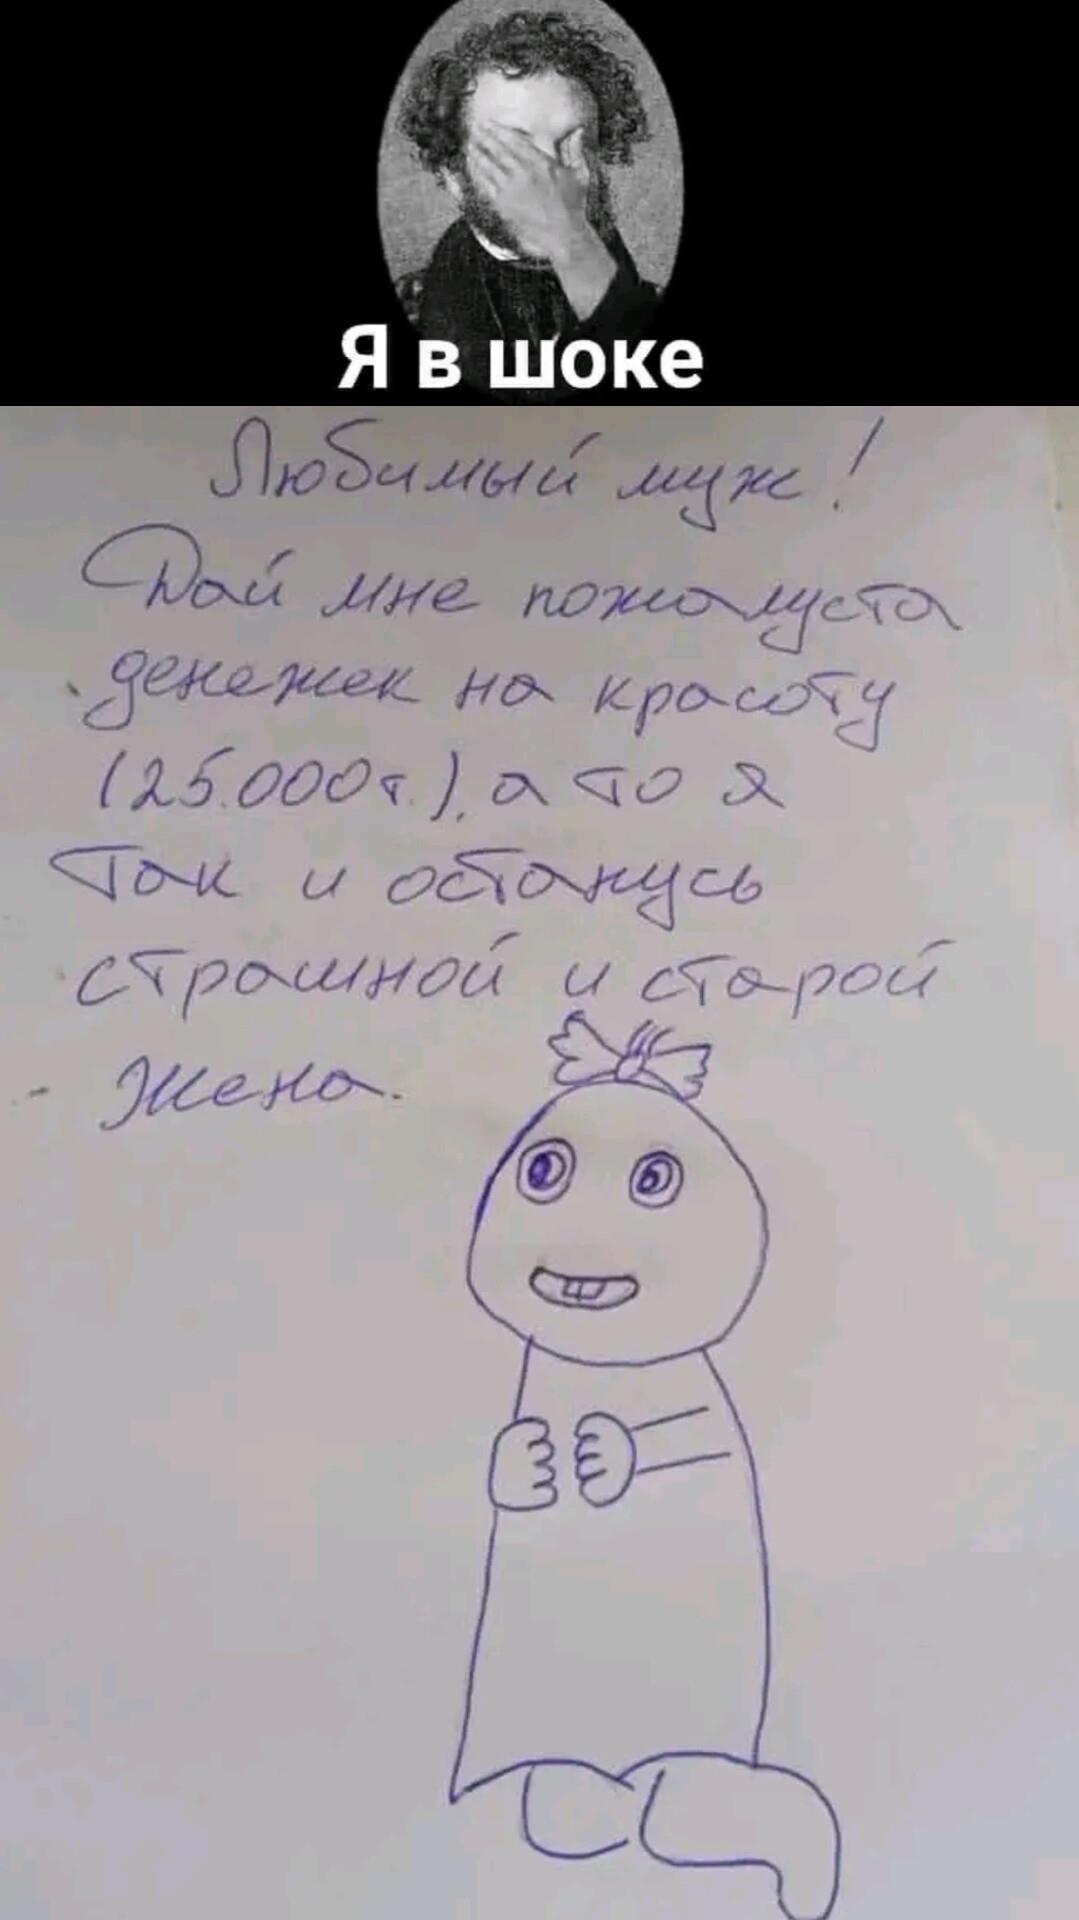 Я в шоке
Любимый муж!
Дай мне пожалуста
денежек на красоту
(25.000т.), а то я
так и останусь
страшной и старой
Жена.